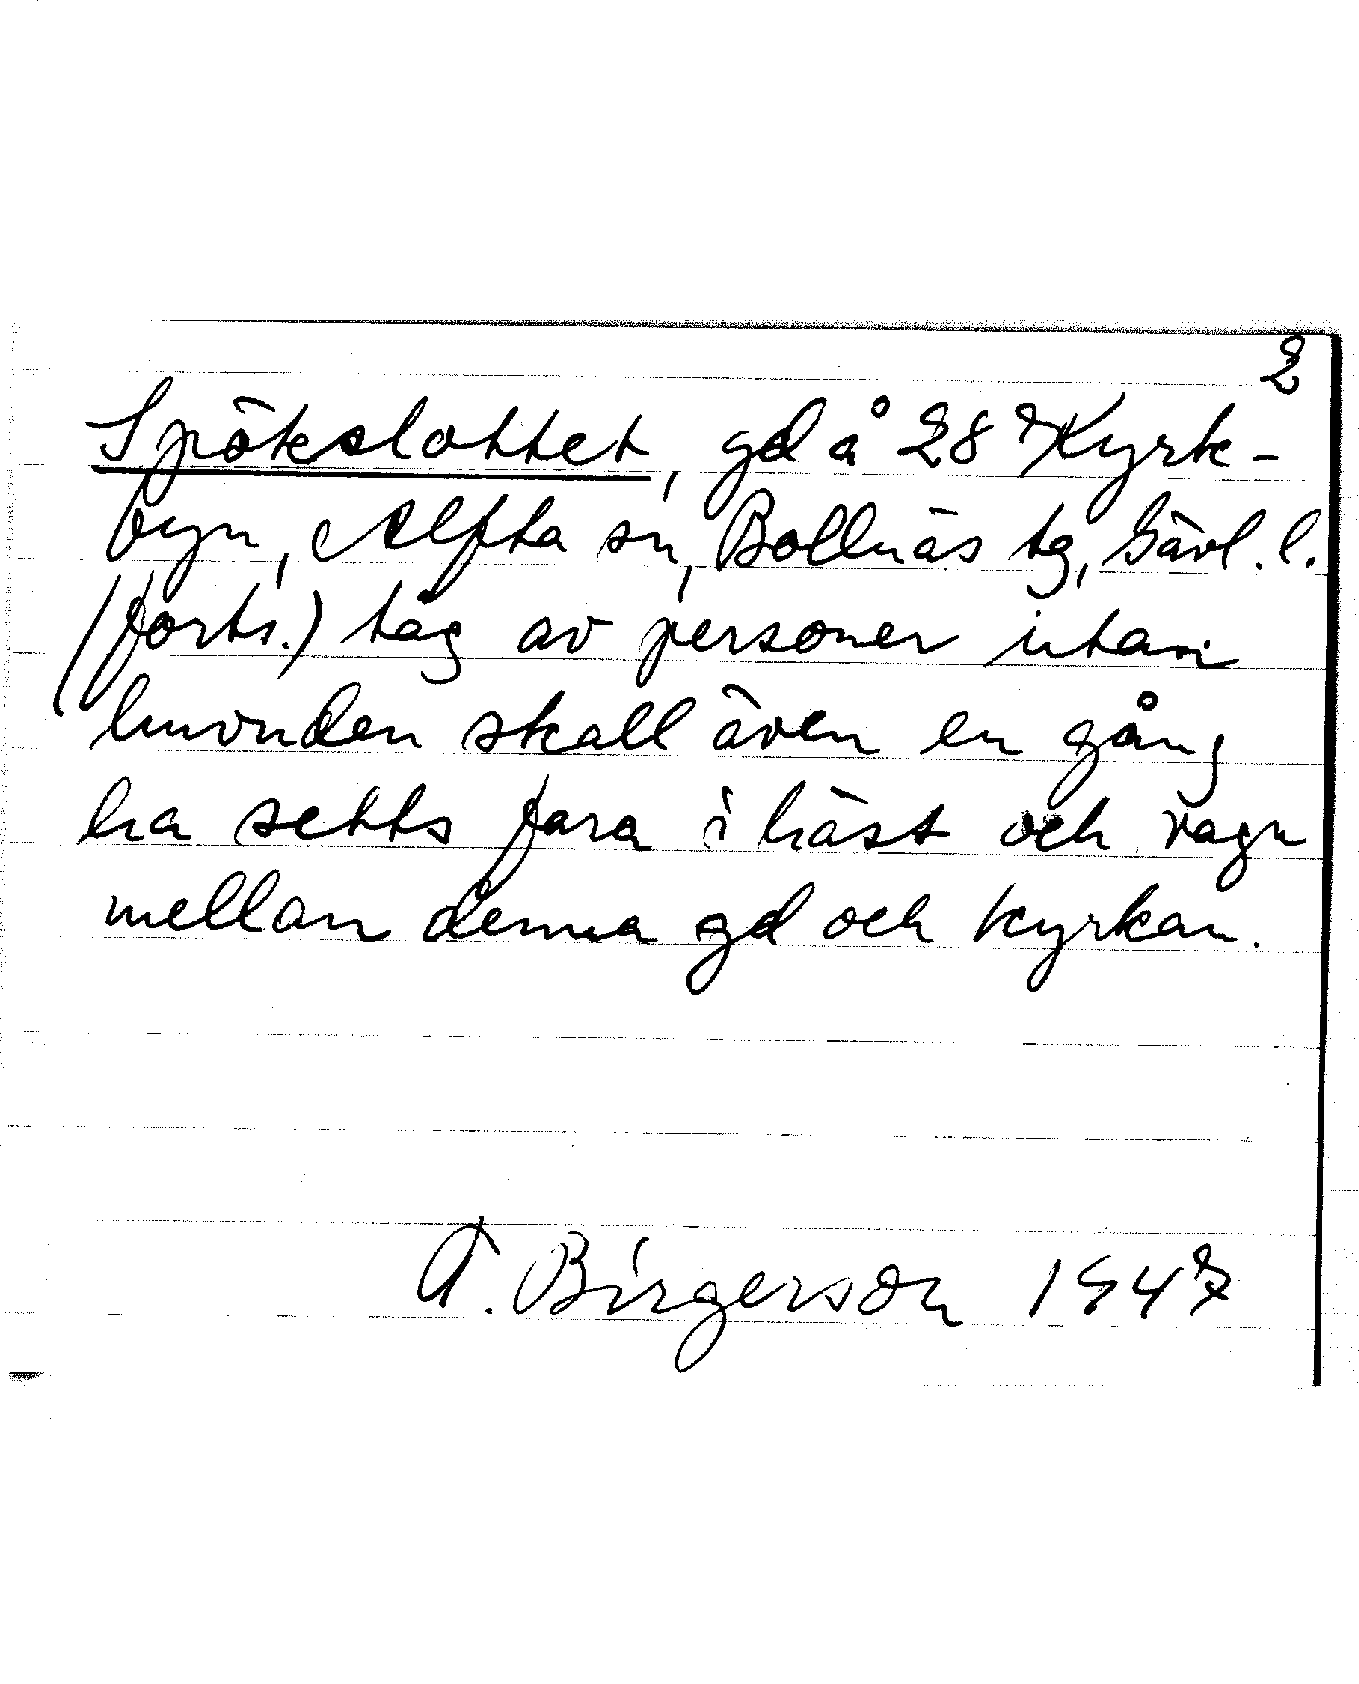 2
Spökslottet, gd å 28 Kyrk-
byn, Alfta sn, Bollnäs tg, Gävl. l.
(forts.) tåg av personer utan
huvuden skall även en gång
ha setts fara i häst och vagn
mellan denna gd och kyrkan.
A. Birgerson 1947